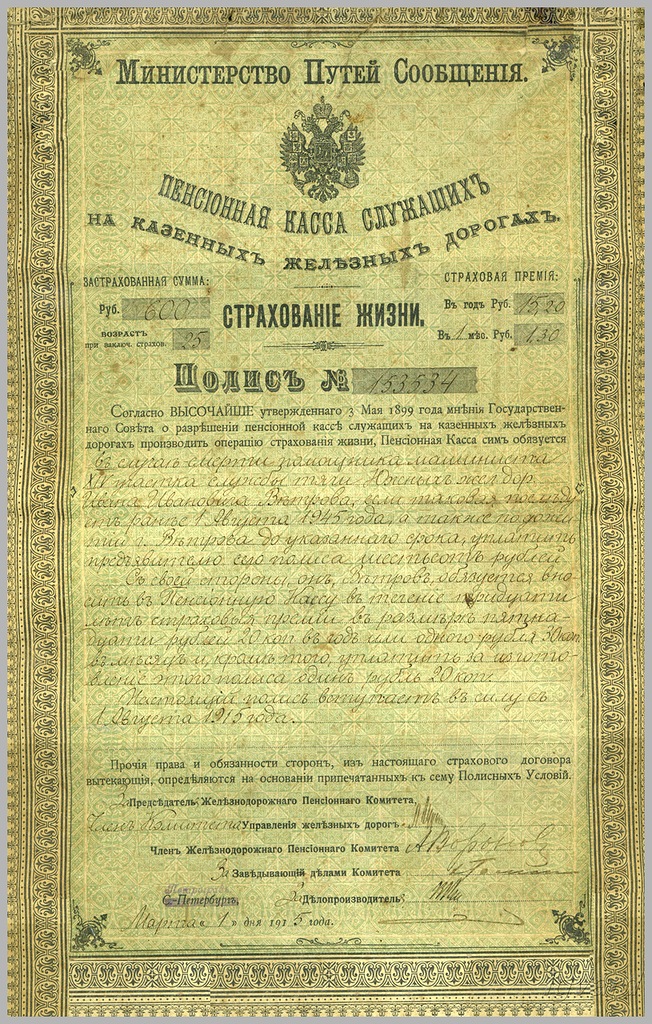 Министерство Путей Сообщенія.
ПЕНСІОННАЯ КАССА СЛУЖАЩИХЪ
НА КАЗЕННЫХЪ ЖЕЛѢЗНЫХЪ ДОРОГАХЪ.
ЗАСТРАХОВАННАЯ СУММА:
Руб. 600
ВОЗРАСТЪ
при заключ. страхов. 25
СТРАХОВАНІЕ ЖИЗНИ.
СТРАХОВАЯ ПРЕМІЯ:
Въ годъ Руб. 15,20
Въ 1 мѣс. Руб. 1,30
Полисъ № 153534
Согласно ВЫСОЧАЙШЕ утвержденнаго 3 Мая 1899 года мнѣнія Государствен-
наго Совѣта о разрѣшеніи пенсіонной кассѣ служащихъ на казенныхъ желѣзныхъ
дорогахъ производить операцію страхованія жизни, Пенсіонная Касса симъ обязуется
въ случаѣ смерти помощника машиниста
XIV участка службы тяги Южныхъ жел. дор.
Ивана Ивановича Вѣтрова, если таковая послѣду-
етъ ранѣе 1 Августа 1945 года, а также по дожи-
тіи г. Вѣтрова до указаннаго срока, уплатить
предъявителю сего полиса шестьсотъ рублей.
Съ своей стороны, онъ, Вѣтровъ, обязуется вно-
сить въ Пенсіонную Кассу въ теченіе тридцати
лѣтъ страховыя преміи въ размѣрѣ пятна-
дцати рублей 20 коп. въ годъ или одного рубля 30 коп.
въ мѣсяцъ и, кромѣ того, уплатить за изготов-
леніе этого полиса одинъ рубль 20 коп.
Настоящій полисъ вступаетъ въ силу съ
1 Августа 1915 года.
Прочія права и обязанности сторонъ, изъ настоящаго страхового договора
вытекающія, опредѣляются на основаніи припечатанныхъ къ сему Полисныхъ Условій.
За Предсѣдатель Желѣзнодорожнаго Пенсіоннаго Комитета,
Членъ Комитета Управленія желѣзныхъ дорогъ
Членъ Желѣзнодорожнаго Пенсіоннаго Комитета
За Завѣдывающій дѣлами Комитета
Петроградъ
С.-Петербургъ,
За Дѣлопроизводитель
Марта « 1 » дня 1915 года.